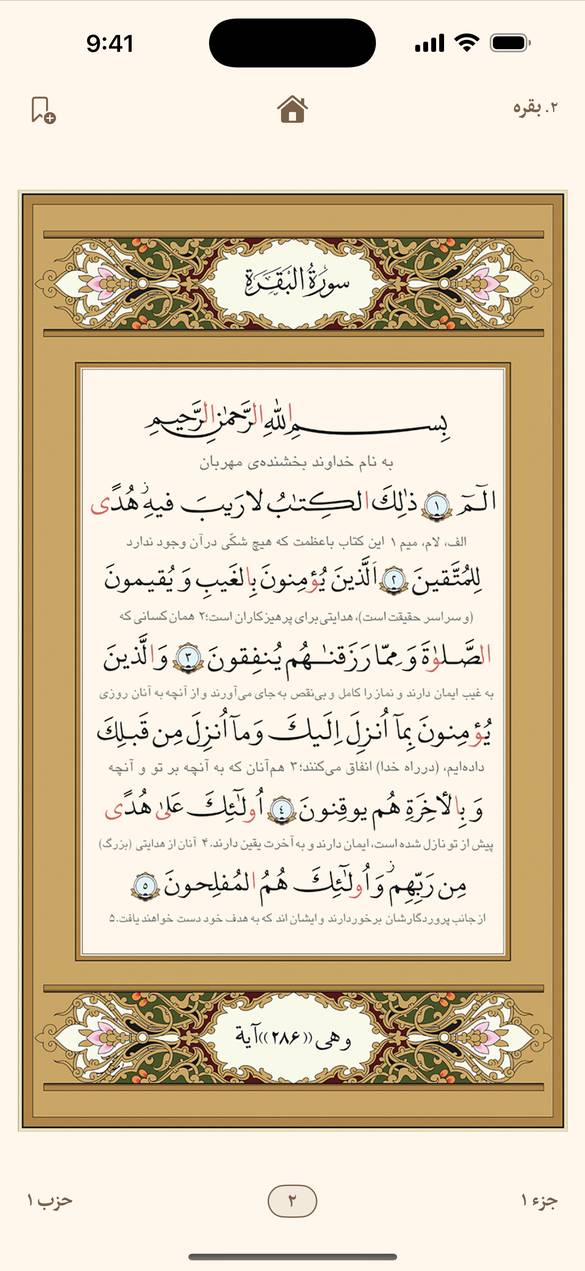 9:41
۲. بقره
سورة البقرة
بسم الله الرحمن الرحيم
به نام خداوند بخشنده‌ی مهربان
الٓمٓ ۱ ذٰلِكَ الكِتٰبُ لا رَيبَ فيهِ هُدًى
الف، لام، میم ۱ این کتاب باعظمت که هیچ شکّی درآن وجود ندارد
لِلمُتَّقينَ ۲ اَلَّذينَ يُؤمِنونَ بِالغَيبِ وَ يُقيمونَ
(و سراسر حقیقت است)، هدایتی برای پرهیزکاران است؛۲ همان کسانی که
الصَّلوٰةَ وَ مِمّا رَزَقنٰهُم يُنفِقونَ ۳ وَالَّذينَ
به غیب ایمان دارند و نماز را کامل و بی‌نقص به جای می‌آورند و از آنچه به آنان روزی
يُؤمِنونَ بِمآ اُنزِلَ اِلَيكَ وَمآ اُنزِلَ مِن قَبلِكَ
داده‌ایم، (درراه خدا) انفاق می‌کنند؛۳ هم‌آنان که به آنچه بر تو و آنچه
وَ بِالأخِرَةِ هُم يوقِنونَ ٤ اُولٰٓئِكَ عَلىٰ هُدًى
پیش از تو نازل شده است، ایمان دارند و به آخرت یقین دارند.۴ آنان از هدایتی (بزرگ)
مِن رَبِّهِم وَ اُولٰٓئِكَ هُمُ المُفلِحونَ ۵
از جانب پروردگارشان برخوردارند و ایشان اند که به هدف خود دست خواهند یافت.۵
وهی ((۲۸۶)) آیة
جزء ۱
۲
حزب ۱